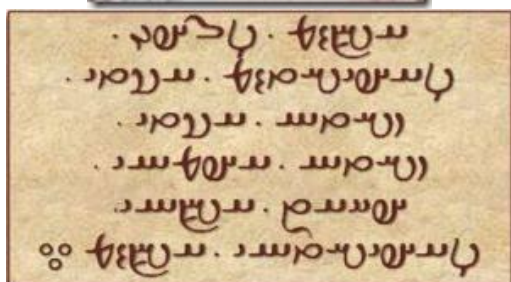 𐬀𐬴𐬆𐬨 . 𐬬𐬊𐬵𐬏 .
𐬬𐬀𐬵𐬌𐬱𐬙𐬆𐬨 . 𐬀𐬯𐬙𐬍 .
𐬎𐬱𐬙𐬁 . 𐬀𐬯𐬙𐬍 .
𐬎𐬱𐬙𐬁 . 𐬀𐬵𐬨𐬁𐬌 .
𐬵𐬌𐬌𐬀𐬝 . 𐬀𐬴𐬁𐬌 .
𐬬𐬀𐬵𐬌𐬱𐬙𐬁𐬌 . 𐬀𐬴𐬆𐬨 ⁂